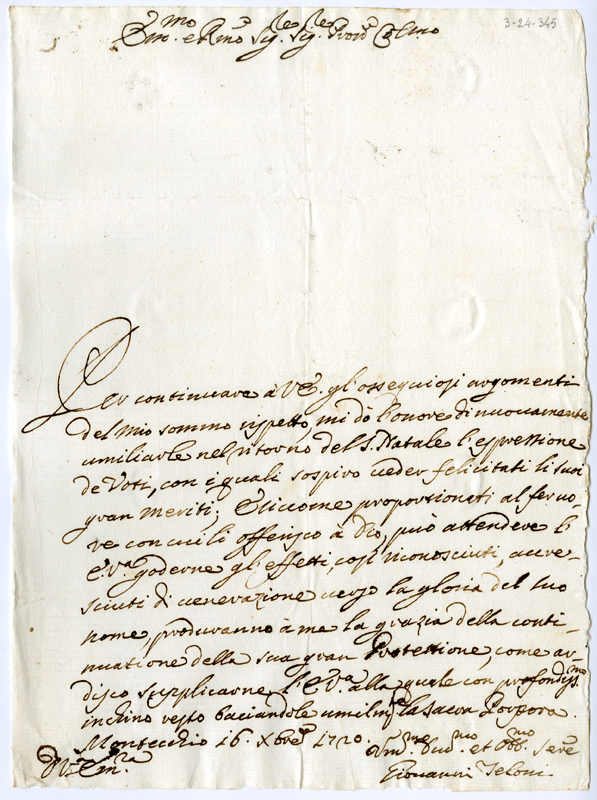 3-24-345
Em.mo e Rmo Sig.re Sig.re Pron Colmo
Per continuare à V.E. gl'ossequiosi argomenti
del mio sommo rispetto, mi dò l'onore di nuovamente
umiliarle nel ritorno del S. Natale l'espressione
de Voti, con i quali sospiro veder felicitati li suoi
gran meriti; E siccome proporzionati al fervo-
re con cui li offerisco à Dio, può attendere l'
E.Va goderne gl'effetti, così riconosciuti, accre-
sciuti di venerazione verso la gloria del suo
nome, produranno à me la grazia della conti-
nuatione della sua gran Protettione, come ar-
disco supplicarne l'E.Va. alla quale con profondiss.mo
inchino resto baciandole umilm.te la Sacra Porpora.
Montecchio 16. Xbre 1720.
Di V. Em.za
Um.mo et Obb.mo Serre
Giovanni Teloni